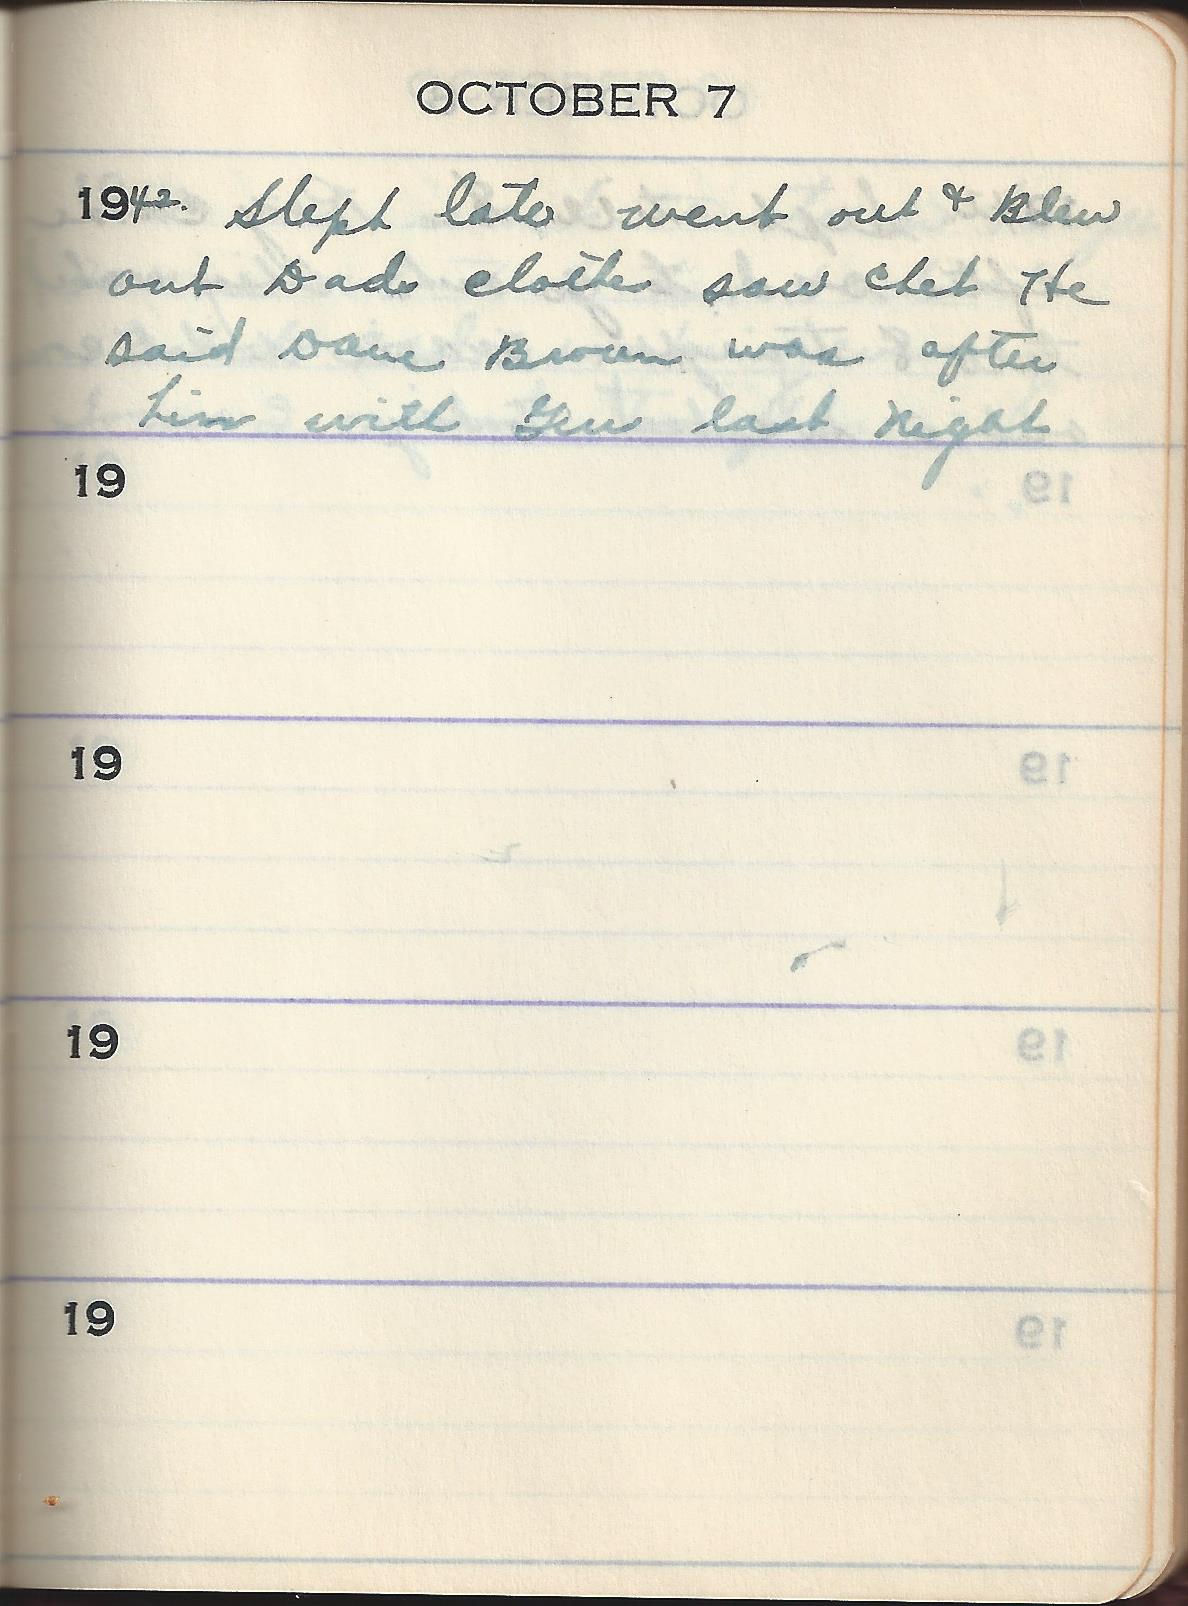 OCTOBER 7
1942. Slept late went out & Blew
out Dads clothes saw Chet He
said Dave Brown was after
him with Gun last Night
19
19
19
19